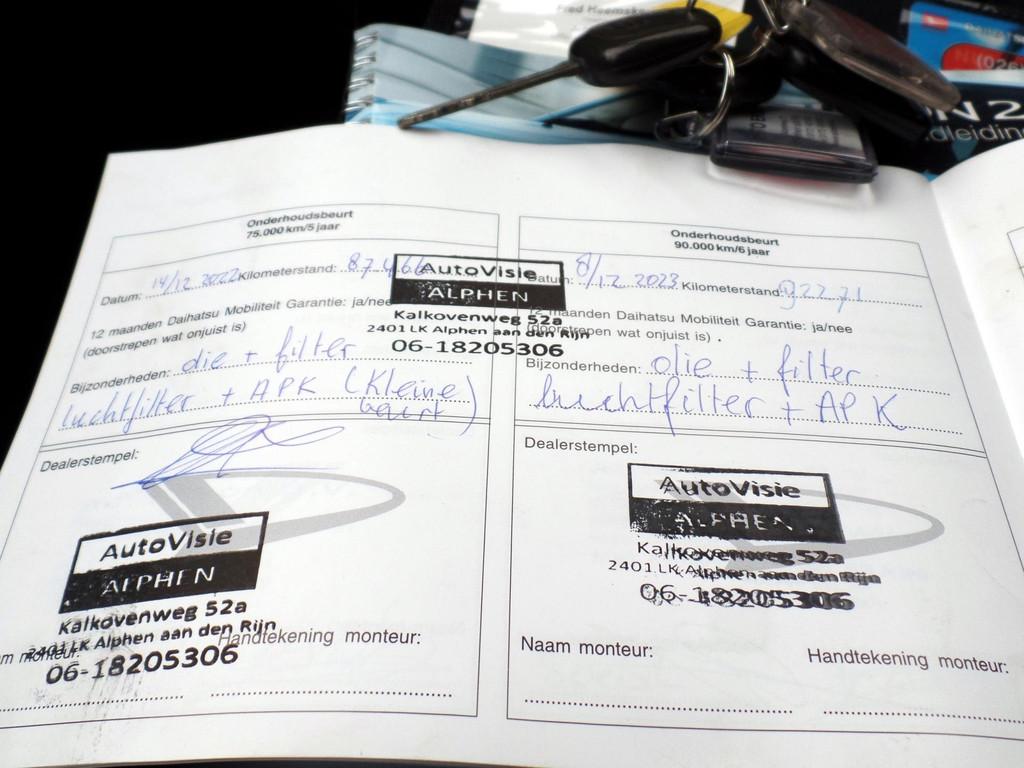 Fred Heemske
(026
N 2
dleiding
Onderhoudsbeurt
75.000 km/5 jaar
Datum: 14/12 2022 Kilometerstand: 87.466
12 maanden Daihatsu Mobiliteit Garantie: ja/nee
(doorstrepen wat onjuist is)
Bijzonderheden: olie + filter
luchtfilter + APK (Kleine
beurt)
Dealerstempel:
AutoVisie
ALPHEN
Kalkovenweg 52a
2401 LK Alphen aan den Rijn
06-18205306
m monteur:
Handtekening monteur:
AutoVisie
ALPHEN
Kalkovenweg 52a
2401 LK Alphen aan den Rijn
06-18205306
Onderhoudsbeurt
90.000 km/6 jaar
Datum: 8/12 2023 Kilometerstand: 92271
12 maanden Daihatsu Mobiliteit Garantie: ja/nee
(doorstrepen wat onjuist is) .
Bijzonderheden: olie + filter
luchtfilter + APK
Dealerstempel:
AutoVisie
ALPHEN
Kalkovenweg 52a
2401 LK Alphen aan den Rijn
06-18205306
Naam monteur:
Handtekening monteur: